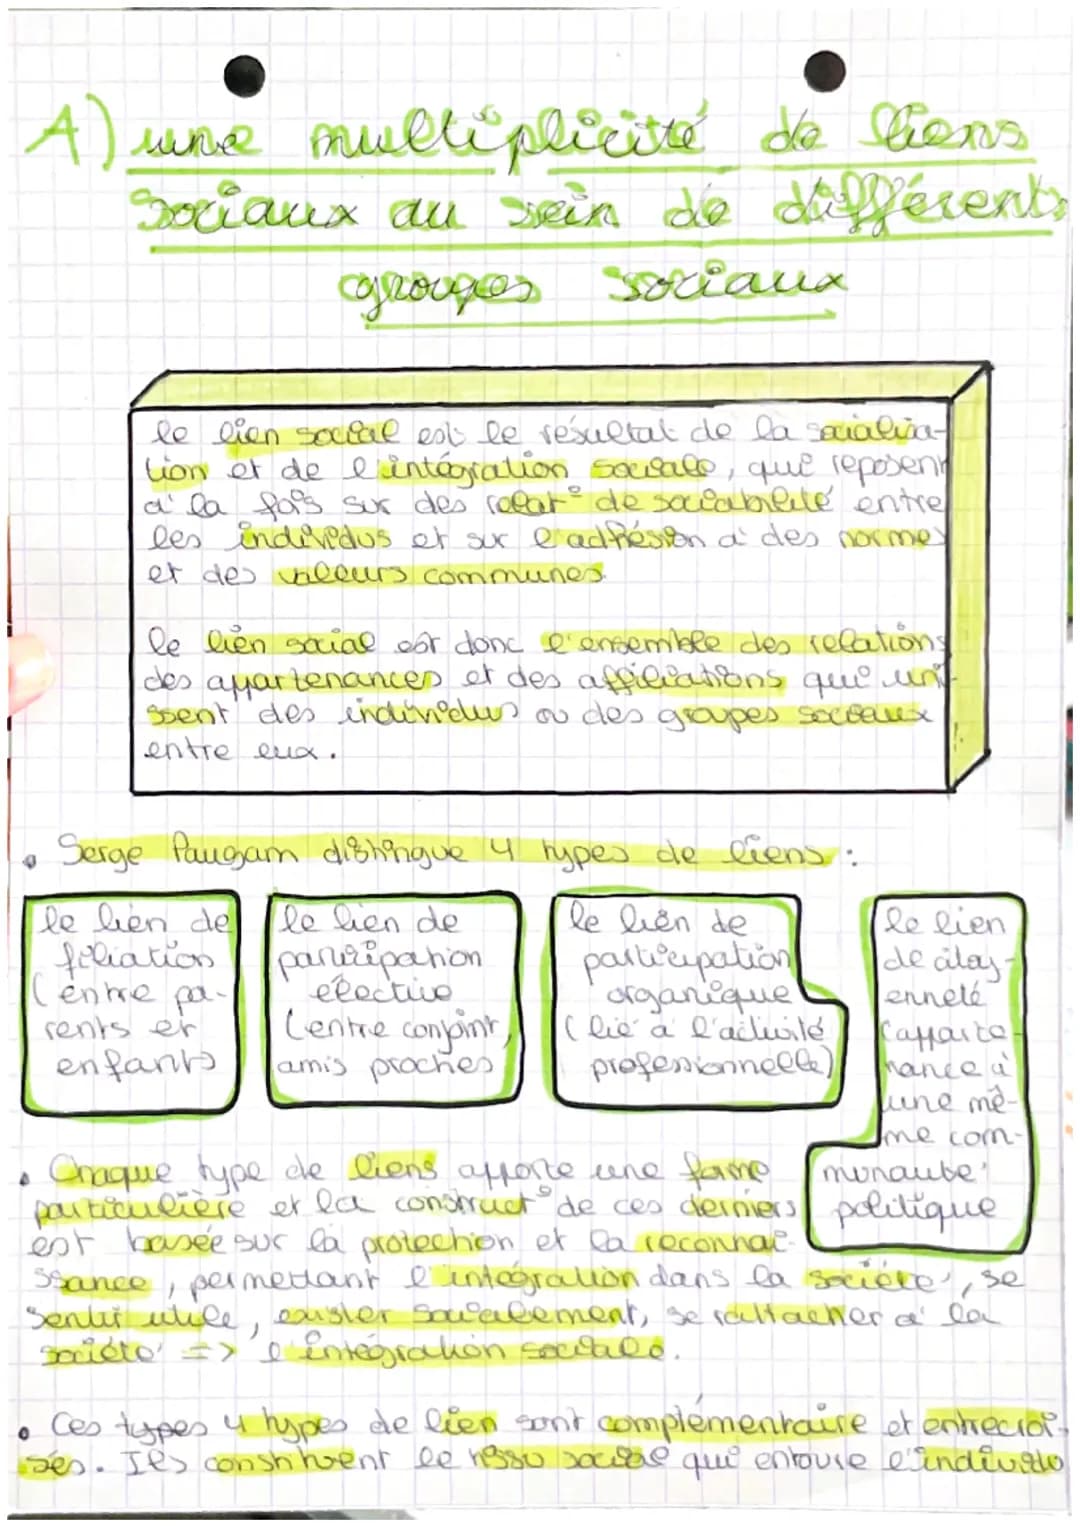 A) une multiplicité de liens
sociaux au sein de différents
groupes sociaux
le lien social est le résultat de la socialisa-
tion et de l'intégration sociale, qui reposent
à la fois sur des relat° de sociabilité entre
les individus et sur l'adhésion à des normes
et des valeurs communes.
le lien social est donc l'ensemble des relations
des appartenances et des affiliations qui uni-
ssent des individus ou des groupes sociaux
entre eux.
• Serge Paugam distingue 4 types de liens :
le lien de
filiation
(entre pa-
rents et
enfants
le lien de
participation
élective
(entre conjoint,
amis proches
le lien de
participation
organique
(lié à l'activité
professionnelle)
le lien
de citoy-
enneté
(apparte-
nance à
une mê-
me com-
munauté
politique
• Chaque type de liens apporte une forme
particulière et la construct° de ces derniers
est basée sur la protection et la reconnai-
ssance, permettant l'intégration dans la société, se
sentir utile, exister socialement, se rattacher à la
société => l'intégration sociale.
• Ces types 4 types de lien sont complémentaire et entrecroi-
sés. Ils constituent le tissu social qui entoure l'individu